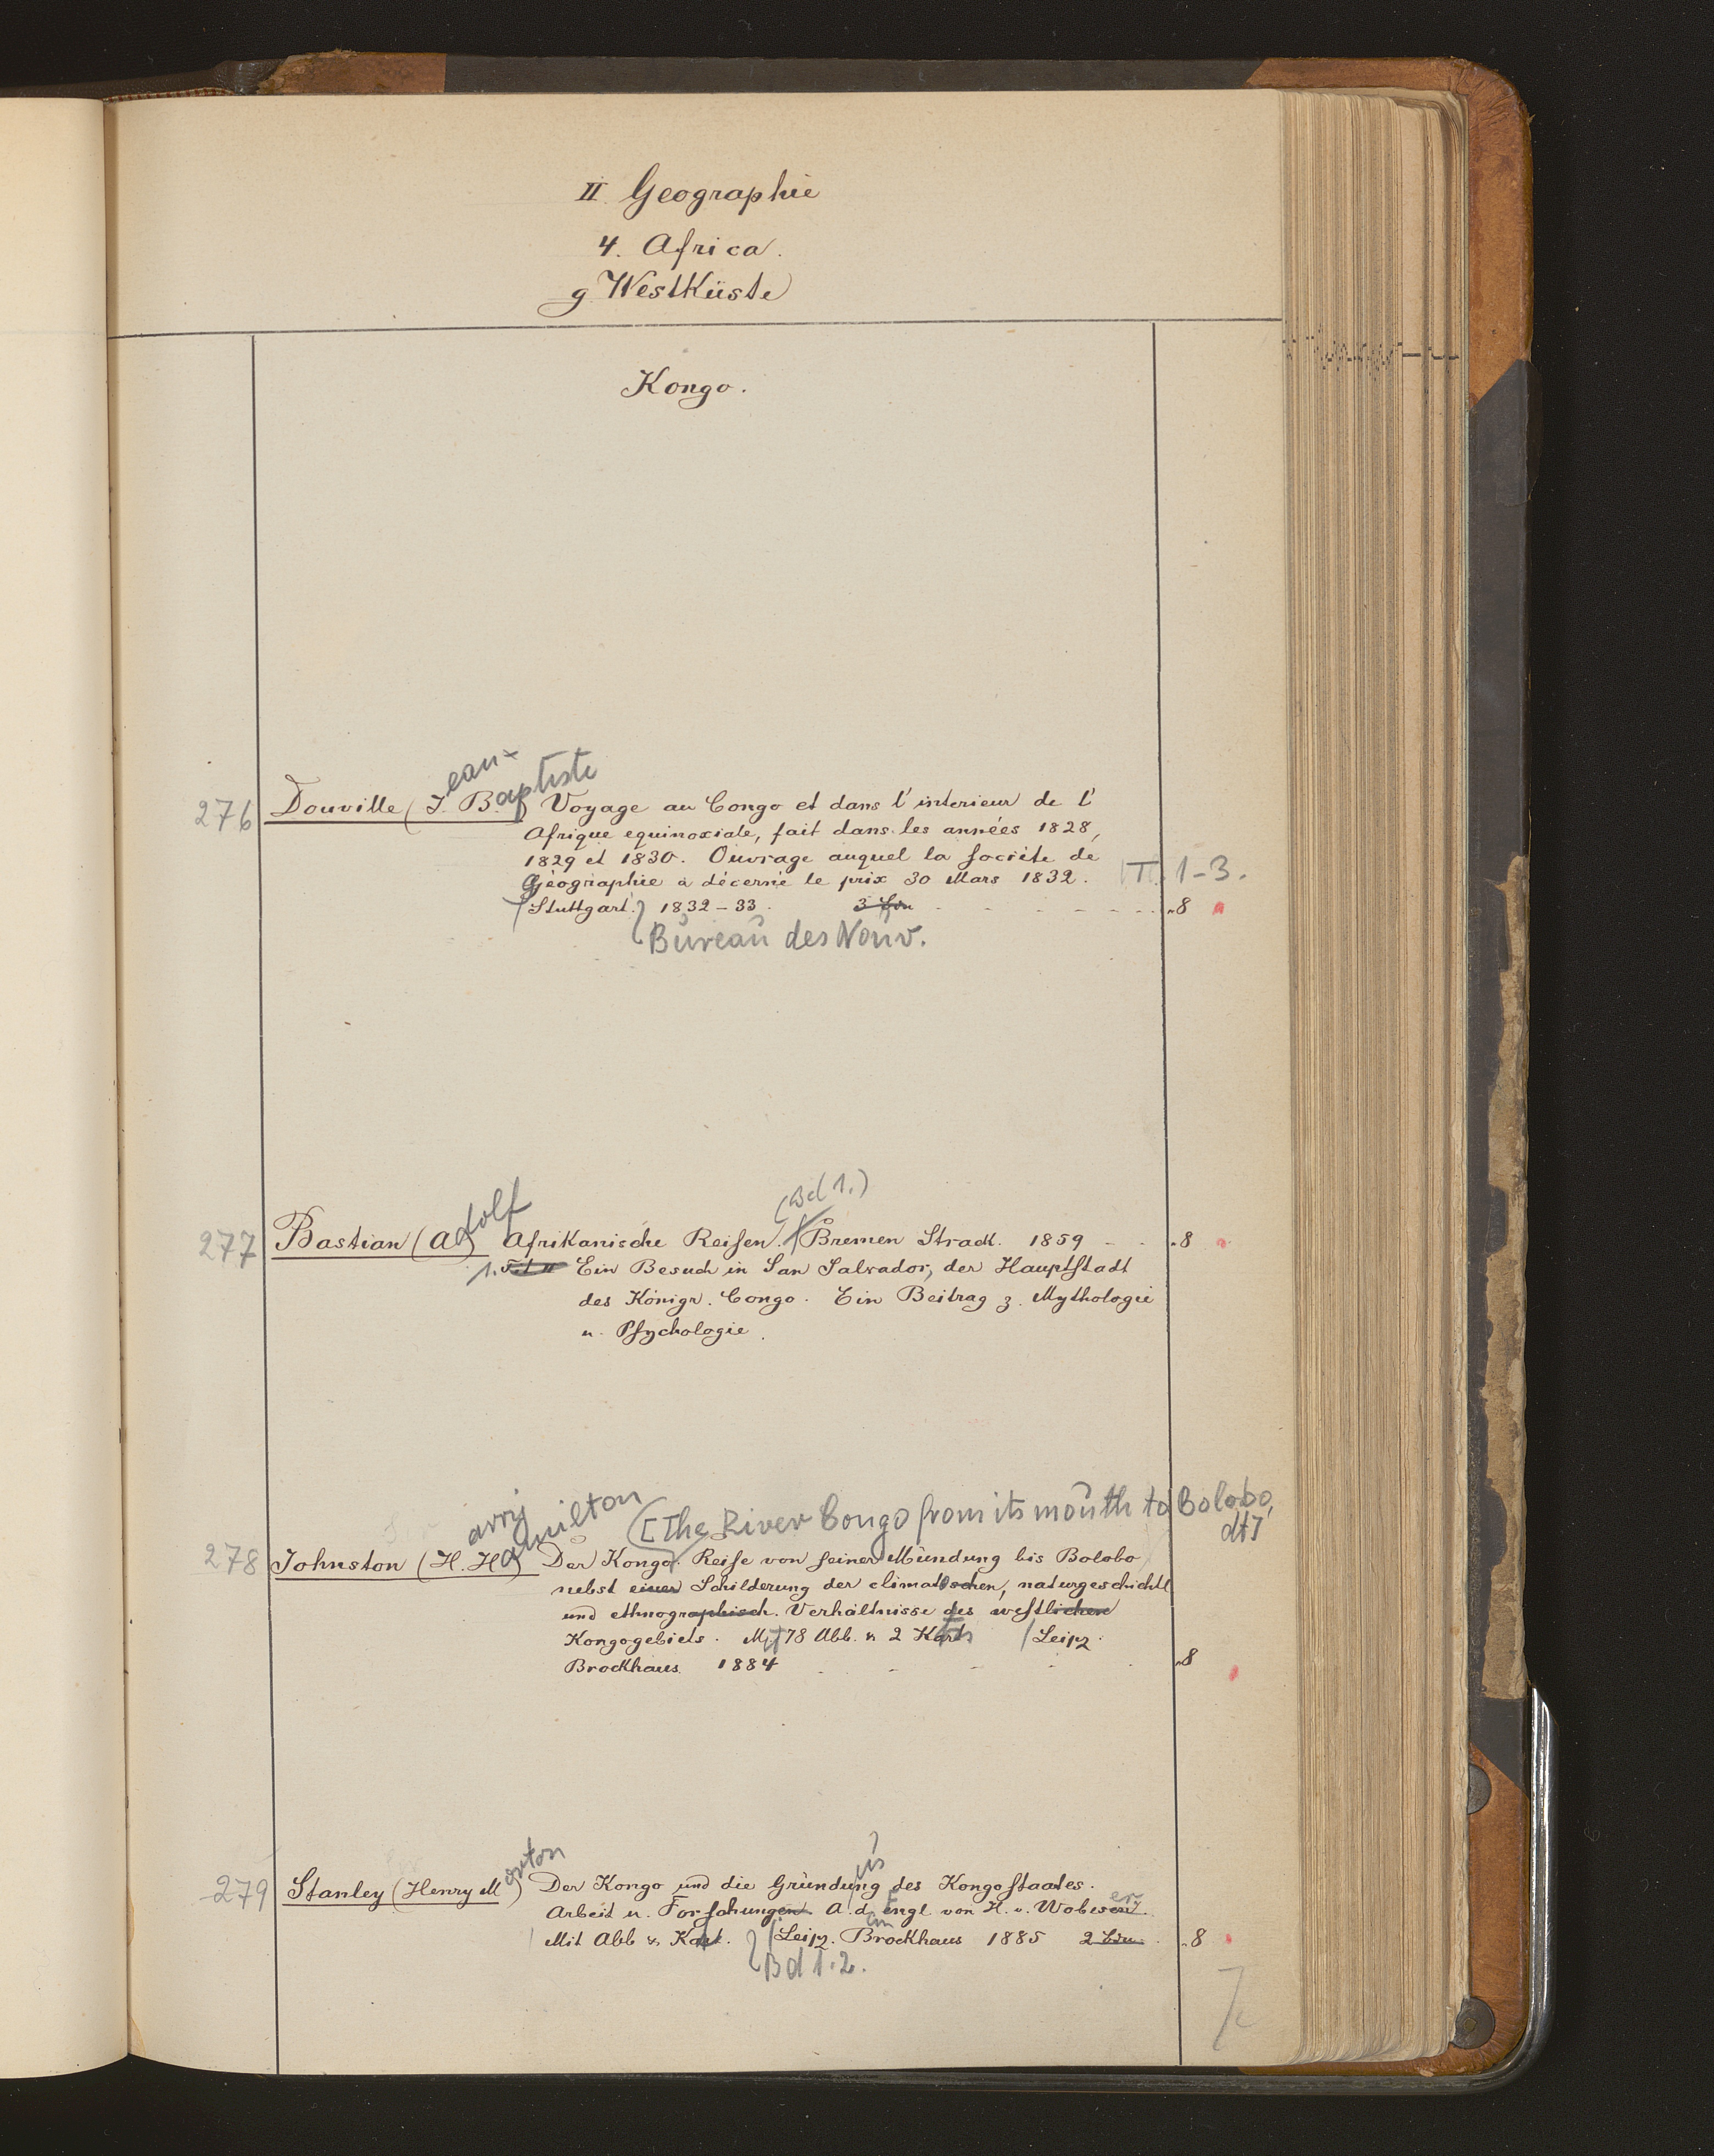 II Geographie
4. Africa.
g Westküste
Kongo.
ean-
aptiste
276 Douville (J. B.) Voyage au Congo et dans l'interieur de l'
Afrique equinoxiale, fait dans les années 1828,
1829 et 1830. Ouvrage auquel la Sociéte de
Géographie a décerné le prix 30 Mars 1832. T. 1-3.
Stuttgart. 1832-33. 3 Bde - - - - - - 8
Bureau des Nouv.
(Bd 1.)
277 Bastian (Adolf) Afrikanische Reisen. Bremen Strack. 1859 - - 8
1. Ein Besuch in San Salvador, der Hauptstadt
des Königr. Congo. Ein Beitrag z. Mythologie
u. Psychologie.
arry amilton [The River Congo from its mouth to Bolobo,
dt]
278 Johnston (H. H.) Der Kongo. Reise von seiner Mündung bis Bolobo
nebst einer Schilderung der climatischen, naturgeschichtl
und ethnographisch. Verhältnisse des westlichen
Kongogebiets. Mit 78 Abb. u. 2 Kart. Leipz.
Brockhaus 1884 - - - - - 8
279 Stanley (Henry Morton) Der Kongo und die Gründung des Kongostaates.
Arbeit u. Forschungen. A. d. Engl von H. v. Wobeser.
Mit Abb u. Kart. Leipz. Brockhaus 1885 2 Bde. 8
Bd 1.2.